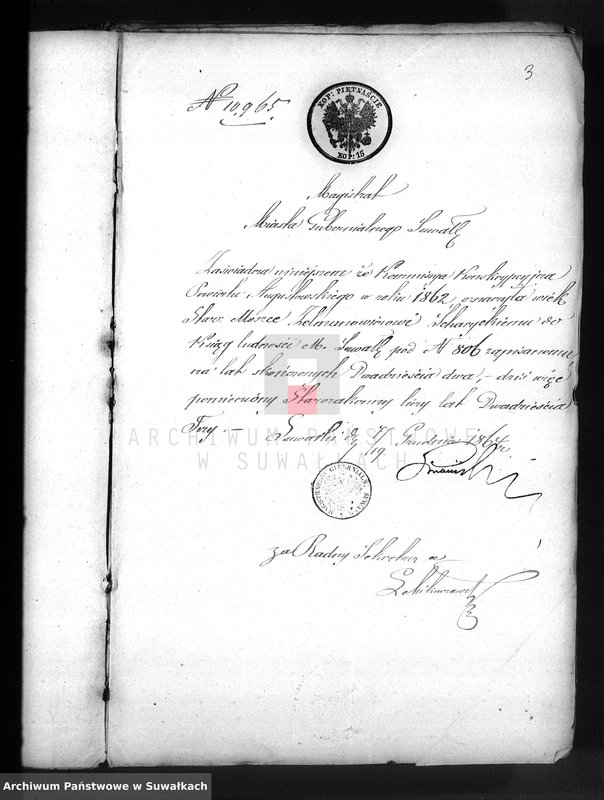 3
N 10,965.
KOP: PIĘTNAŚCIE
KOP: 15
Magistrat
Miasta Gubernialnego Suwałk
Zaświadcza niniejszem że Kommissya Konskrypcyjna
Powiatu Augustowskiego w roku 1862, oznaczyła wiek
Staroz. Mośce Zelmanowiczowi do
Księg ludności M. Suwałk pod N 806 zapisanemu
na lat skończonych Dwadzieścia dwa, – dziś więc
pomieniony Starozakonny liczy lat Dwadzieścia
Trzy. – Suwałki d. 7/19 Grudnia 1864 r.
za Radny Sekretarz
ARCHIWUM PAŃSTWOWE
W SUWAŁKACH
Archiwum Państwowe w Suwałkach